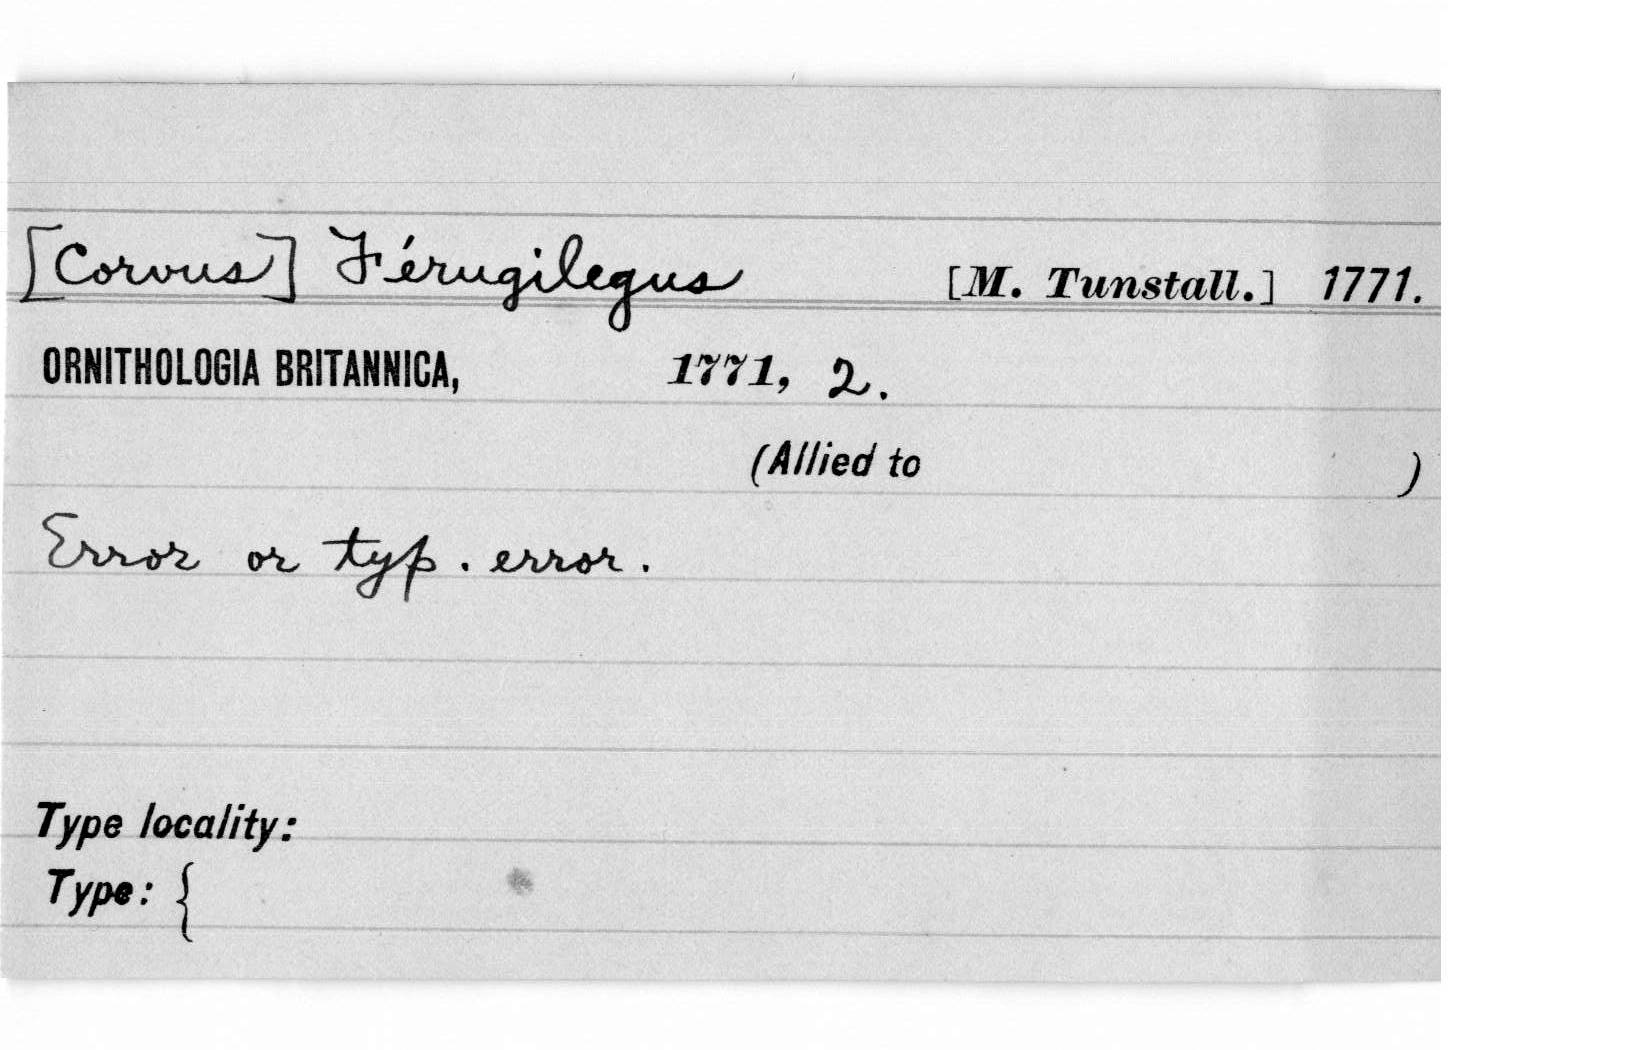 [Corvus] Férugilegus [M. Tunstall.] 1771.
ORNITHOLOGIA BRITANNICA, 1771, 2.
(Allied to )
Error or typ. error.
Type locality:
Type: {